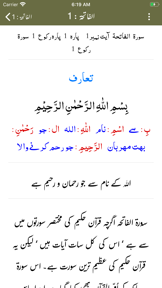 Carrier 6:19 AM
الفَاتِحَة : 1
الفَاتِحَة : 1
سورۃ الفاتحۃ آیت نمبر 1 پارہ 1 پارہ رکوع 1 سورۃ رکوع 1
تعارف
بِسْمِ اللّٰهِ الرَّحْمٰنِ الرَّحِیْمِ
بِ: سے اسْمِ: نام اللّٰهِ: اللہ ال: جو رَحْمٰنِ:
بہت مہربان الرَّحِیْمِ: جو رحم کرنے والا
اللہ کے نام سے جو رحمان و رحیم ہے
سورۃ الفاتحہ اگرچہ قرآن حکیم کی مختصر سورتوں میں
سے ہے ‘ اس کی کل سات آیات ہیں ‘ لیکن یہ
قرآن حکیم کی عظیم ترین سورت ہے۔ اس سورۃ